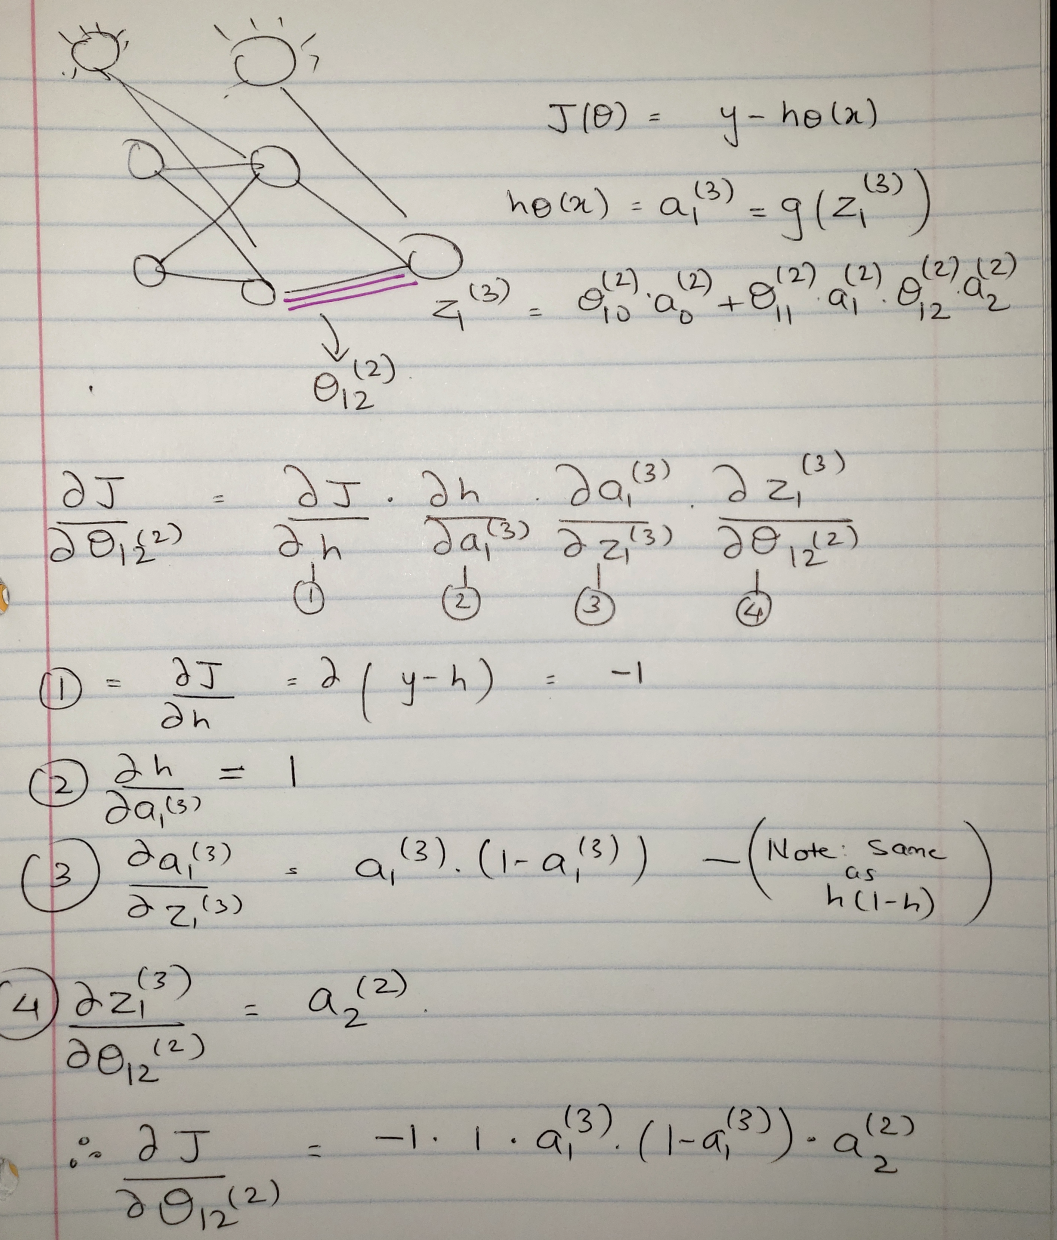 J(θ) = y - hθ(x)
hθ(x) = a₁⁽³⁾ = g(z₁⁽³⁾)
z₁⁽³⁾ = θ₁₀⁽²⁾·a₀⁽²⁾ + θ₁₁⁽²⁾·a₁⁽²⁾·θ₁₂⁽²⁾·a₂⁽²⁾
θ₁₂⁽²⁾
∂J/∂θ₁₂⁽²⁾ = ∂J/∂h · ∂h/∂a₁⁽³⁾ · ∂a₁⁽³⁾/∂z₁⁽³⁾ · ∂z₁⁽³⁾/∂θ₁₂⁽²⁾
① ② ③ ④
① = ∂J/∂h = ∂(y-h) = -1
② ∂h/∂a₁⁽³⁾ = 1
③ ∂a₁⁽³⁾/∂z₁⁽³⁾ = a₁⁽³⁾·(1-a₁⁽³⁾) — (Note: Same as h(1-h))
④ ∂z₁⁽³⁾/∂θ₁₂⁽²⁾ = a₂⁽²⁾.
∴ ∂J/∂θ₁₂⁽²⁾ = -1·1·a₁⁽³⁾·(1-a₁⁽³⁾)·a₂⁽²⁾